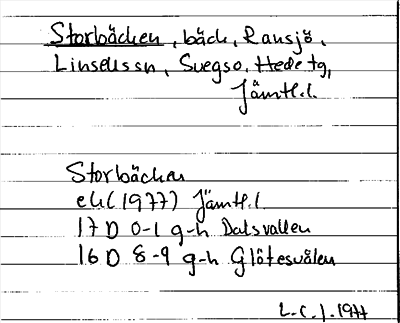 Storbäcken, bäck, Ransjö,
Linsellssn, Svegso, Hede tg,
Jämtl.l.
Storbäcken
ek (1977) Jämtl.l
17 D 0-1 g-h Dalsvallen
16 D 8-9 g-h Glötesvålen
L.C.J. 1977